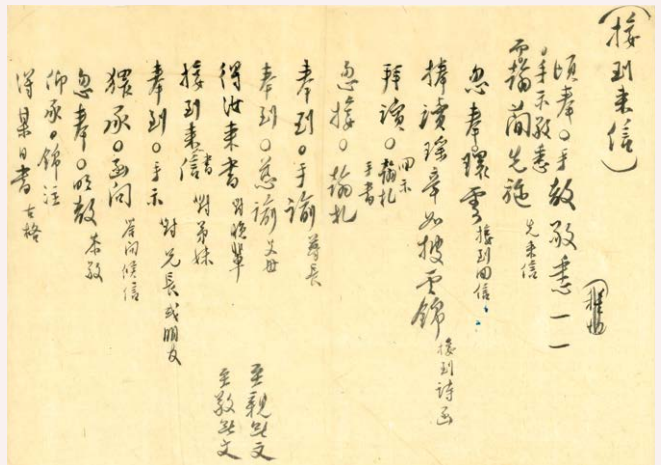 (接到來信)
頃奉○手教敬悉一一
○手示敬悉
雲箋蘭先施 先來信
忽奉○環雲 接到回信
捧讀瑤章如披雲錦 接到詩函
拜讀○翰札 回示 手書
忽接○翰札
奉到○手諭 尊長
奉到○慈諭 父母
得汝來書 對晚輩
接到來信 書 對弟妹
奉到○手示 對兄長或朋友
猥承○函問 答問候信
忽奉○明教 答教
仰承○錦注
得某日書 古格
至親此文
至敬此文